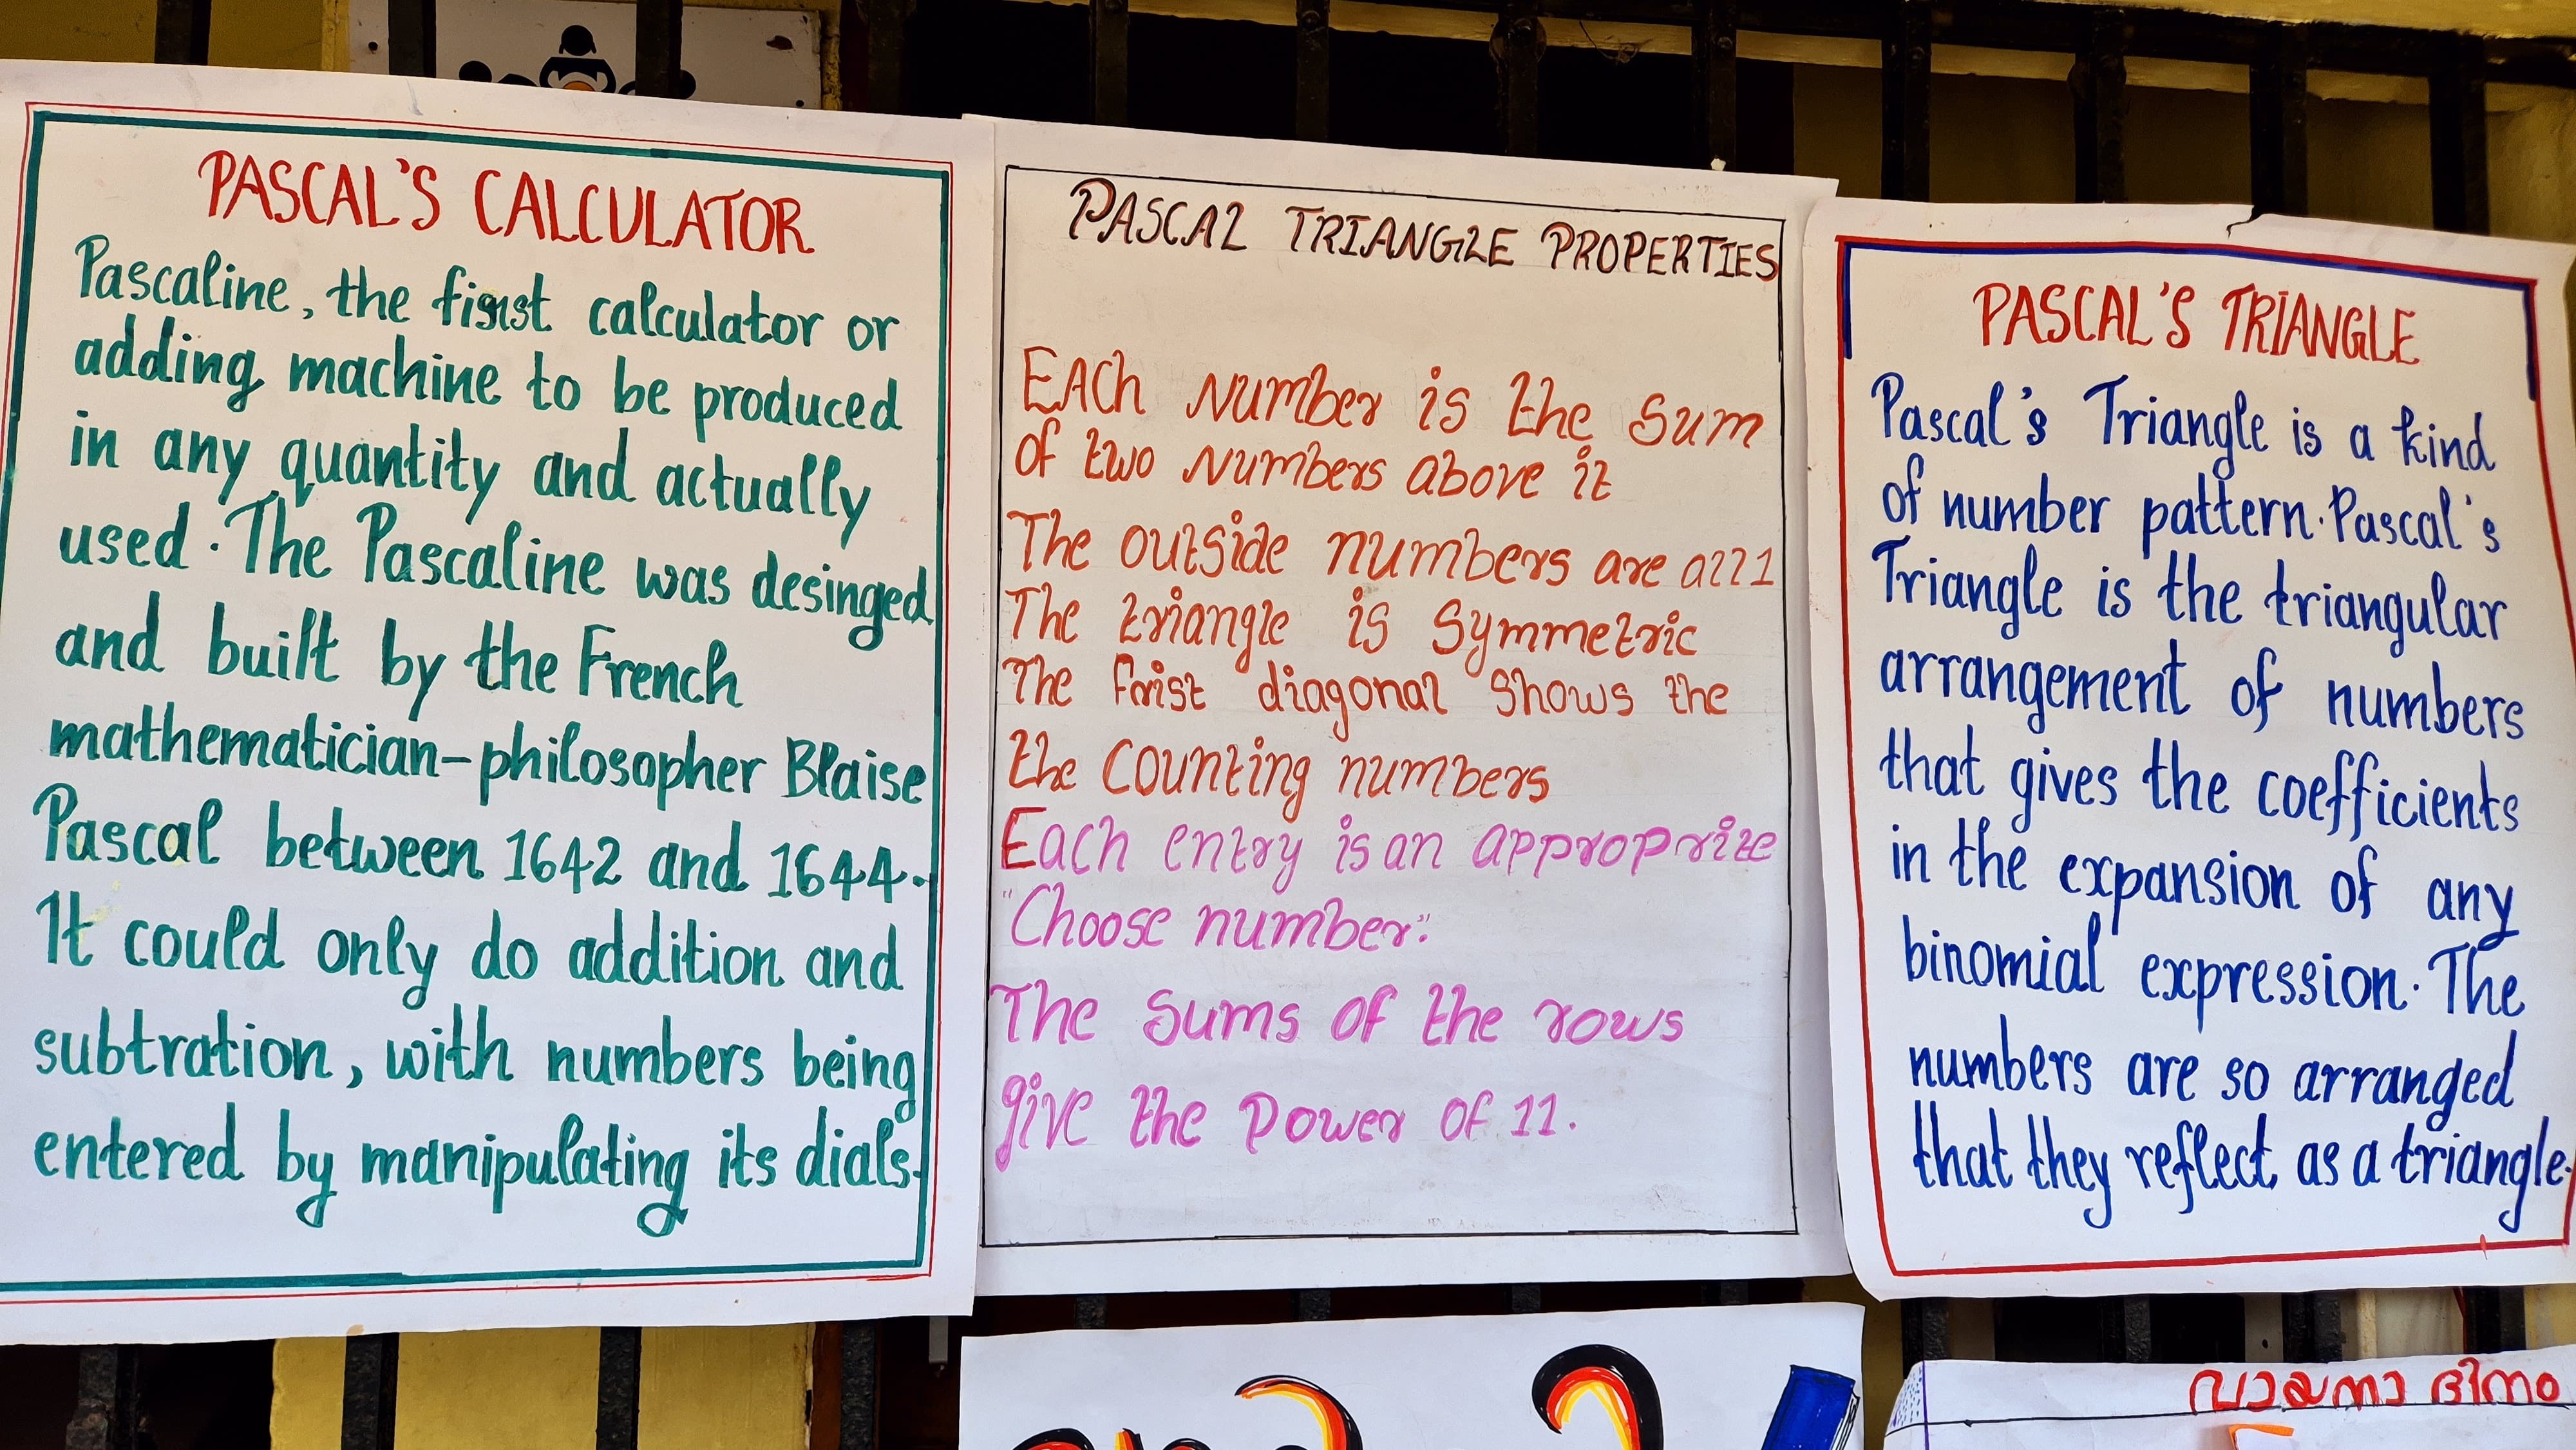 PASCAL'S CALCULATOR
Pascaline, the first calculator or
adding machine to be produced
in any quantity and actually
used. The Pascaline was desinged
and built by the French
mathematician-philosopher Blaise
Pascal between 1642 and 1644.
It could only do addition and
subtration, with numbers being
entered by manipulating its dials.
PASCAL TRIANGLE PROPERTIES
EACh Number is the Sum
of two Numbers above it
The outside numbers are all 1
The triangle is Symmetric
The frist diagonal shows the
the counting numbers
Each entry is an approprite
"Choose number."
The sums of the rows
give the power of 11.
PASCAL'S TRIANGLE
Pascal's Triangle is a kind
of number pattern. Pascal's
Triangle is the triangular
arrangement of numbers
that gives the coefficients
in the expansion of any
binomial expression. The
numbers are so arranged
that they reflect as a triangle.
വായനാ ദിനം